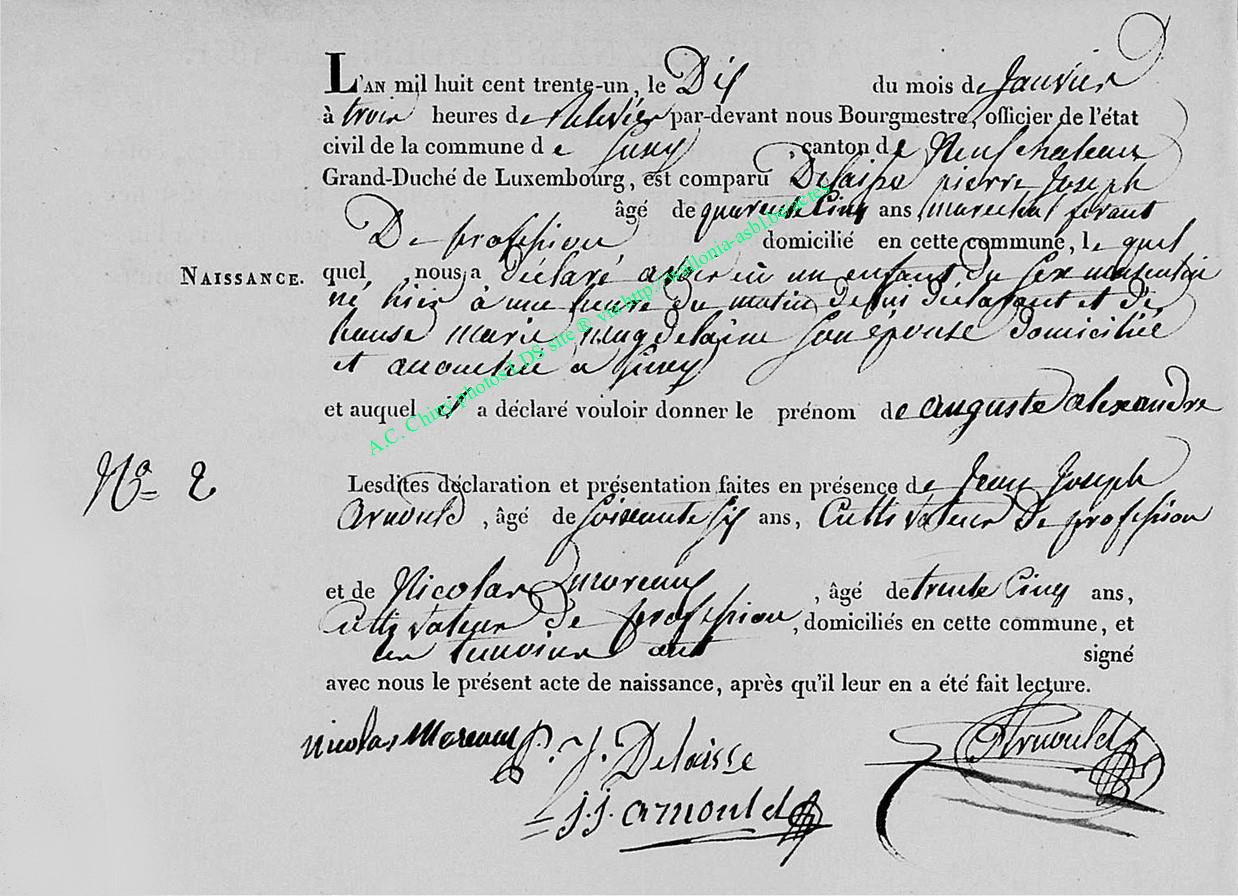 L'AN mil huit cent trente-un, le Dix du mois de Janvier
à trois heures de relevéer par-devant nous Bourgmestre, officier de l'état
civil de la commune de , canton de Neufchateau
Grand-Duché de Luxembourg, est comparu Delaisse pierre Joseph
âgé de quarente Cinq ans, marechal ferant
De profession domicilié en cette commune, le quel
NAISSANCE. quel nous a déclaré avoir eü un enfant du sex masculin
né hier à une heure du matin de lui déclarant et de
hause marie magdelaine son épouse domiciliée
et accouchée a
et auquel il a déclaré vouloir donner le prénom de auguste alexandre
No 2 Lesdites déclaration et présentation faites en présence de Jean Joseph
Arnould, âgé de soixante six ans, Cultivateur De profession
et de Nicolas moreaux, âgé de trente Cinq ans,
Cultivateur de profession, domiciliés en cette commune, et
les temoins ont signé
avec nous le présent acte de naissance, après qu'il leur en a été fait lecture.
nicolas Moreaux P. J. Delaisse Arnould
J. J. arnould
A.C. Chiny photos LDS site ® via http://wallonia-asbl.be/actes